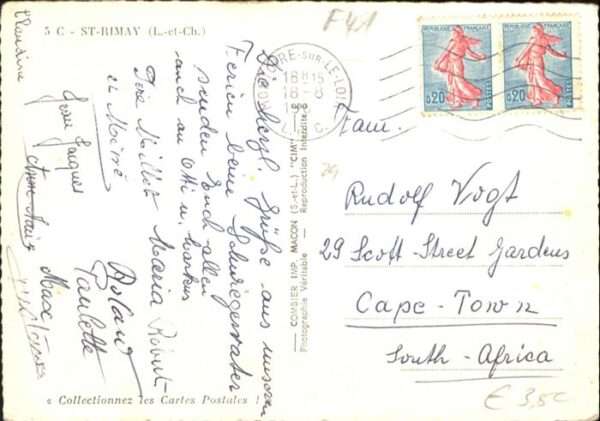 5 C - ST-RIMAY (L.-et-Ch.)
F41
Die herzl. Grüße aus unseren
Ferien beim Schwiegervater
senden Euch allen
auch an Otti u.
Maria Robert
et
Jean Jacques
Claudine
Roland
Paulette
— COMBIER IMP. MACON (S.-et-L.) "CIM" —
Photographie Véritable - Reproduction Interdite
-SUR-LE-LOIR
18 H15
18 - 8
REPUBLIQUE FRANÇAISE
0,20
POSTES
REPUBLIQUE FRANÇAISE
0,20
POSTES
Fam.
Rudolf Vogt
29 Scott-Street Gardens
Cape-Town
South-Africa
€ 3,50
« Collectionnez les Cartes Postales !